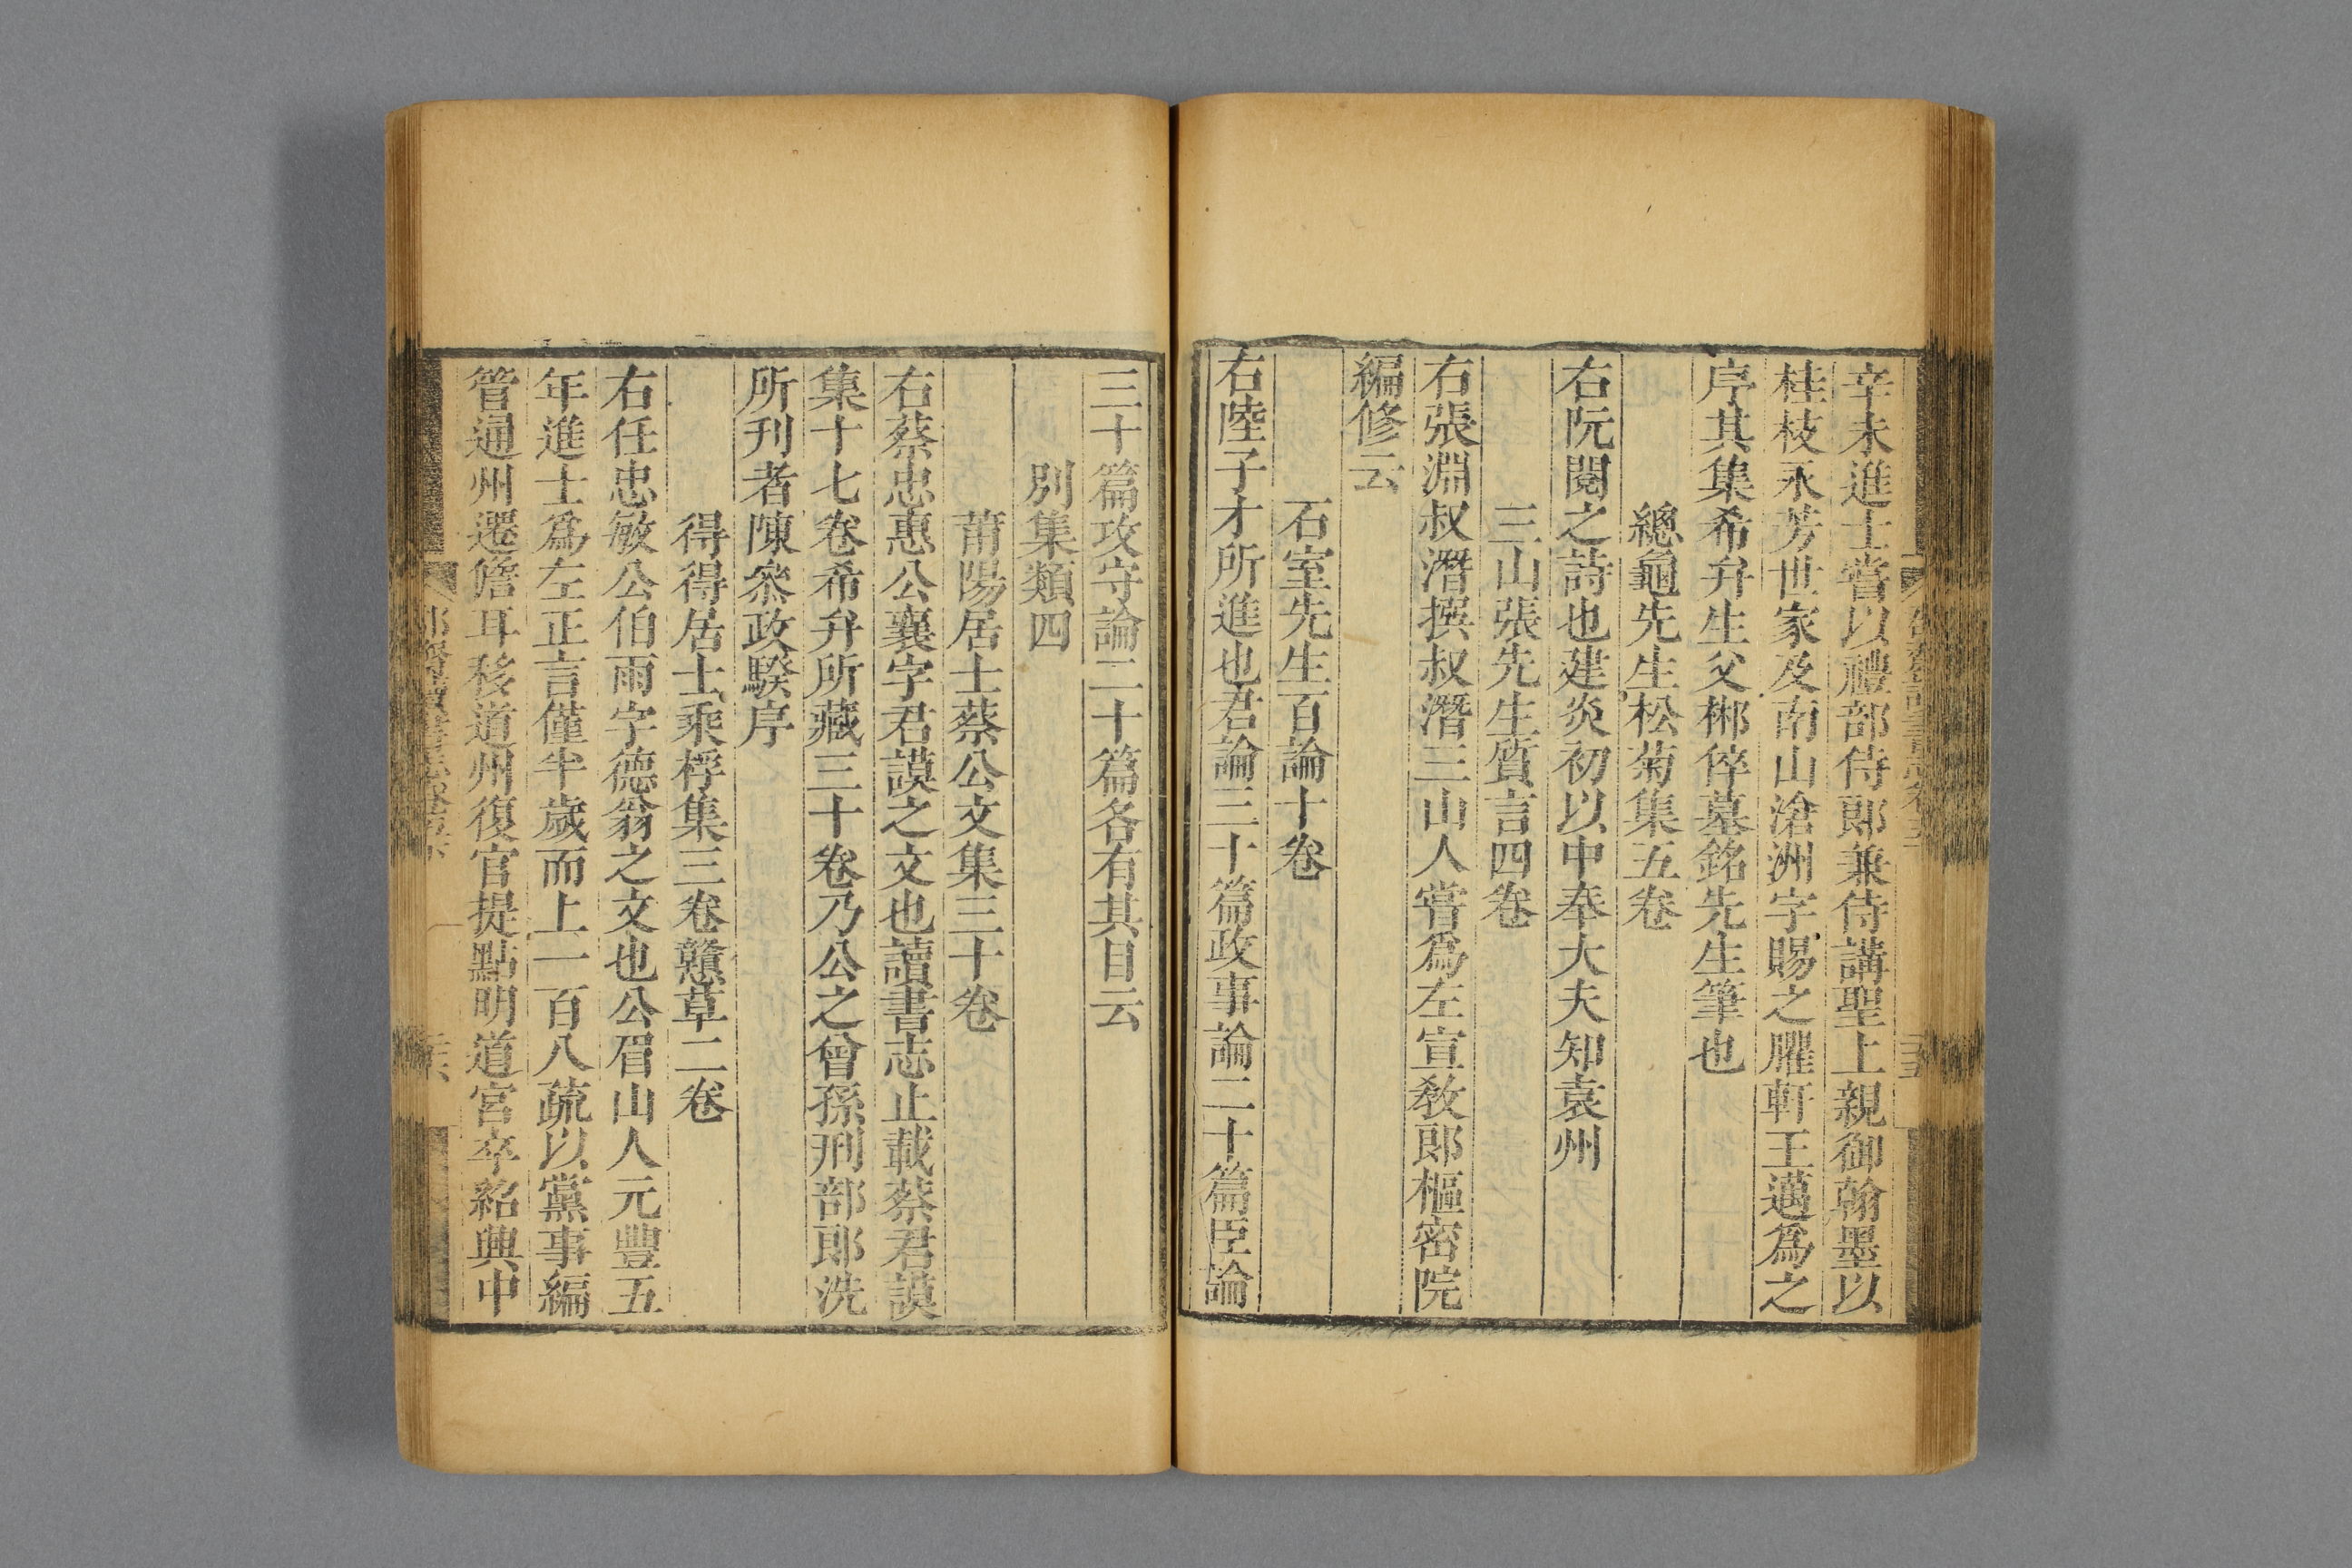 辛未進士嘗以禮部侍郎兼侍講聖上親御翰墨以
桂枝永芳世家及南山滄洲字賜之臞軒王邁爲之
序其集希弁生父郴倅墓銘先生筆也
總龜先生松菊集五卷
右阮閱之詩也建炎初以中奉大夫知袁州
三山張先生質言四卷
右張淵叔潛撰叔潛三山人嘗爲左宣敎郎樞密院
編修云
石室先生百論十卷
右陸子才所進也君論三十篇政事論二十篇臣論
三十篇攻守論二十篇各有其目云
別集類四
莆陽居士蔡公文集三十卷
右蔡忠惠公襄字君謨之文也讀書志止載蔡君謨
集十七卷希弁所藏三十卷乃公之曾孫刑部郎洗
所刋者陳叅政騤序
得得居士乘桴集三卷戇草二卷
右任忠敏公伯雨字德翁之文也公眉山人元豐五
年進士爲左正言僅半歲而上一百八疏以黨事編
管通州遷儋耳移道州復官提點明道宮卒紹興中